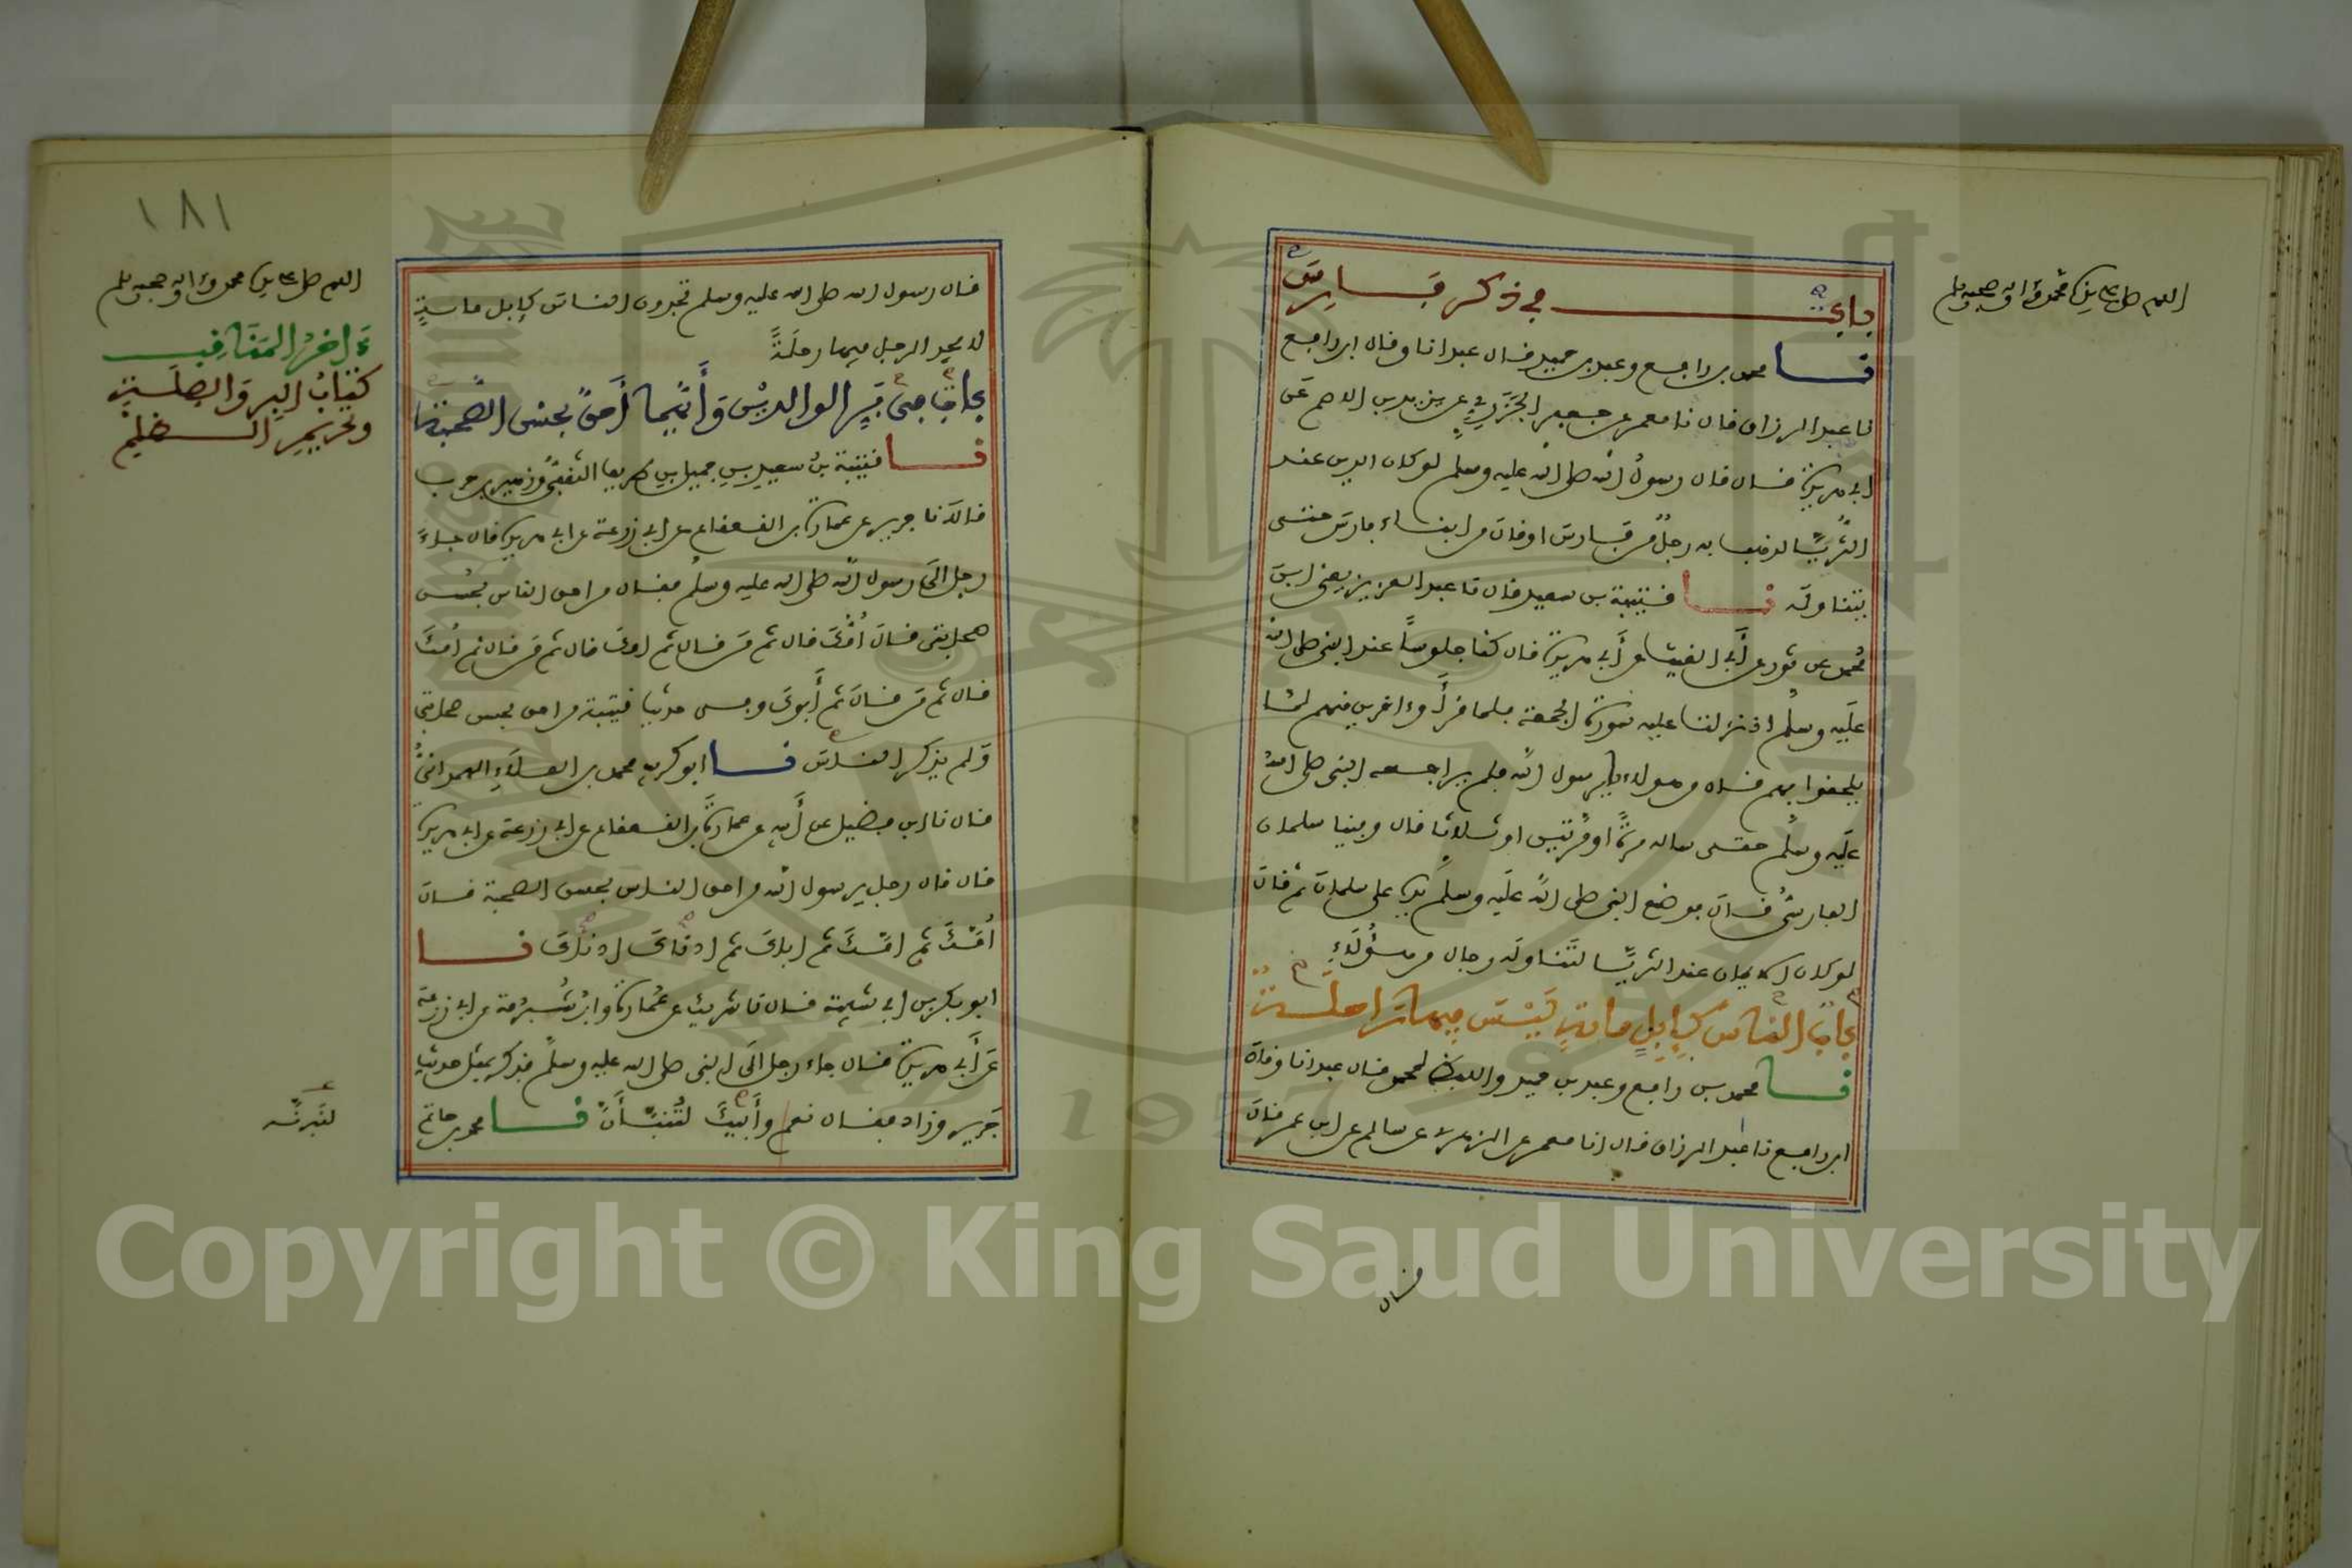 اللهم صل على سيدنا محمد وءاله وصحبه وسلم
باب في ذكر فارس
نا محمد بن رافع وعبد بن حميد قال عبد انا وقال ابن رافع
نا عبد الرزاق قال نا معمر عن جعفر الجزري عن يزيد بن الاصم عن
ابي هريرة قال قال رسول الله صلى الله عليه وسلم لو كان الدين عند
الثريا لذهب به رجل من فارس او قال من ابناء فارس حتى
يتناوله نا قتيبة بن سعيد قال نا عبد العزيز يعني ابن
محمد عن ثور عن أبي الغيث عن أبي هريرة قال كنا جلوسا عند النبي صلى الله
عليه وسلم اذ نزلت عليه سورة الجمعة فلما قرأ وءاخرين منهم لما
يلحقوا بهم قال من هولاء يا رسول الله فلم يراجعه النبي صلى الله
عليه وسلم حتى ساله مرة او مرتين او ثلاثا قال وفينا سلمان
الفارسي قال فوضع النبي صلى الله عليه وسلم يده على سلمان ثم قال
لو كان الايمان عند الثريا لتناوله رجال من هؤلاء
باب الناس كإبل مائة ليس فيها راحلة
نا محمد بن رافع وعبد بن حميد واللفظ لمحمد قال عبد انا وقال
ابن رافع نا عبد الرزاق قال انا معمر عن الزهري عن سالم عن ابن عمر قال
قال
١٨١
اللهم صل على سيدنا محمد وءاله وصحبه وسلم
ءاخر المناقب
كتاب البر والصلة
وتحريم الظلم
قال رسول الله صلى الله عليه وسلم تجدون الناس كإبل مائة
لا يجد الرجل فيها رحلة
باب في بر الوالدين وأيهما أحق بحسن الصحبة
نا قتيبة بن سعيد بن جميل بن طريف الثقفي وزهير بن حرب
قالا نا جرير عن عمارة بن القعقاع عن ابي زرعة عن ابي هريرة قال جاء
رجل الى رسول الله صلى الله عليه وسلم فقال من احق الناس بحسن
صحابتي قال أمك قال ثم من قال ثم امك قال ثم من قال ثم أمك
قال ثم من قال ثم أبوك وفي حديث قتيبة من احق بحسن صحابتي
ولم يذكر الناس نا ابو كريب محمد بن العلاء الهمداني
قال نا ابن فضيل عن أبيه عن عمارة بن القعقاع عن ابي زرعة عن ابي هريرة
قال قال رجل يرسول الله من احق الناس بحسن الصحبة قال
أمك ثم امك ثم اباك ثم ادناك ادناك نا
ابو بكر بن ابي شيبة قال نا شريك عن عمارة وابن شبرمة عن ابي زرعة
عن أبي هريرة قال جاء رجل الى النبي صلى الله عليه وسلم فذكر بمثل حديث
جرير وزاد فقال نعم وأبيك لتنبأن نا محمد بن حاتم
Copyright © King Saud University
1957